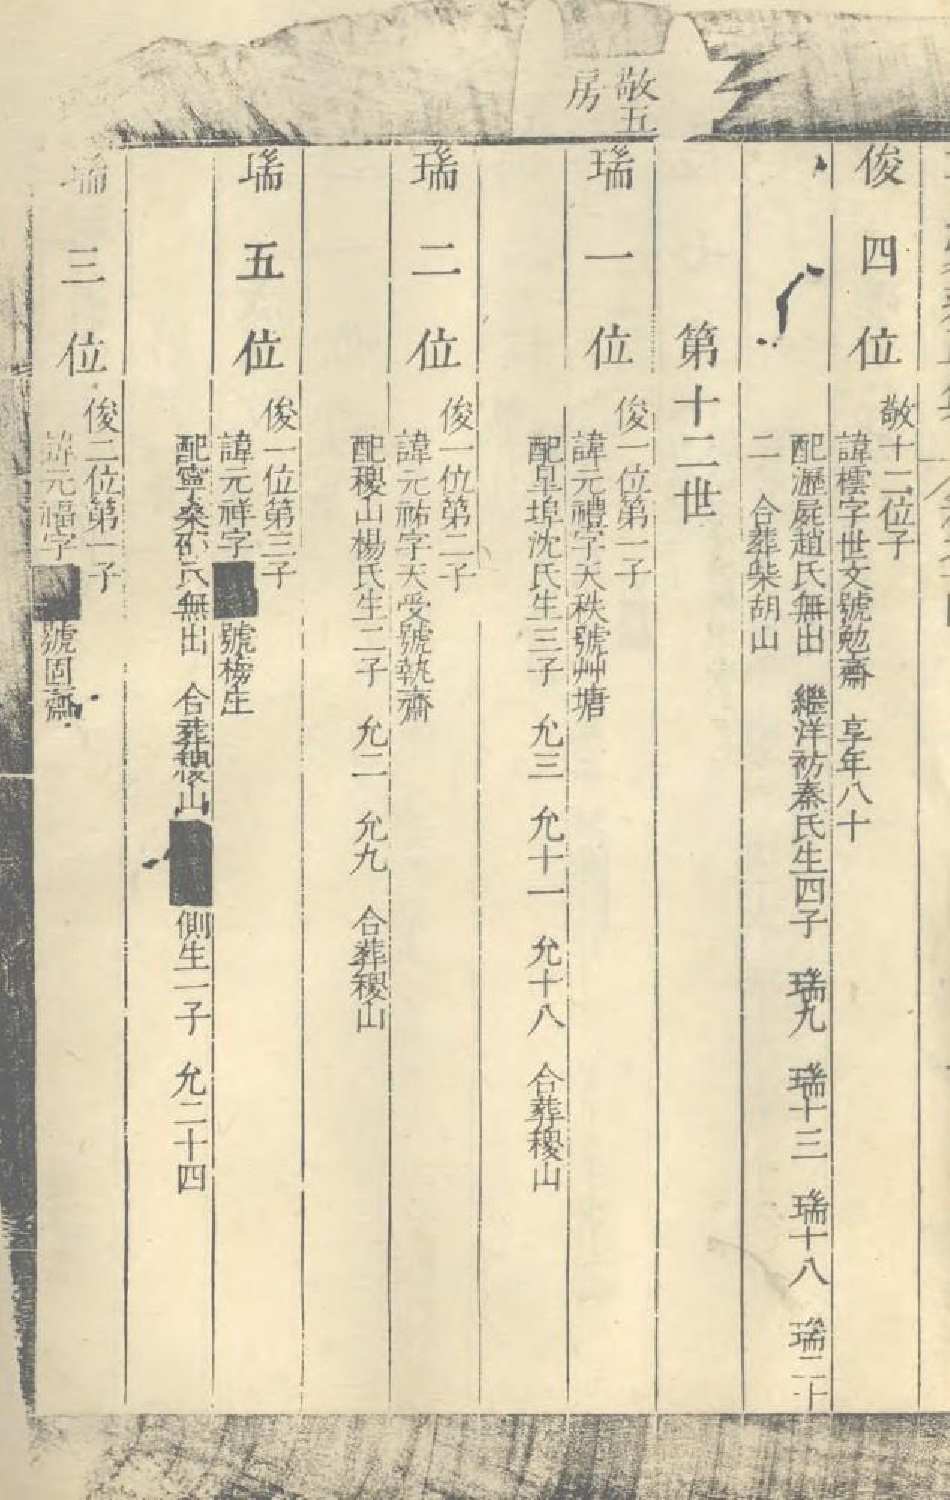 敬五
房
俊四位
敬十二位子
諱櫺字世文號勉齋 享年八十
配瀝屍趙氏無出 繼洋祊秦氏生四子 瑞九 瑞十三 瑞十八 瑞二十
二 合葬柴胡山
第十二世
瑞一位
俊一位第一子
諱元禮字天秩號艸塘
配皐埠沈氏生三子 允三 允十一 允十八 合葬稷山
瑞二位
俊一位第二子
諱元祐字天受號執齋
配稷山楊氏生二子 允二 允九 合葬稷山
瑞五位
俊一位第三子
諱元祥字 號梅庄
配寧桑 氏無出 合葬稷山 側生一子 允二十四
瑞三位
俊二位第一子
諱元福字 號固齋